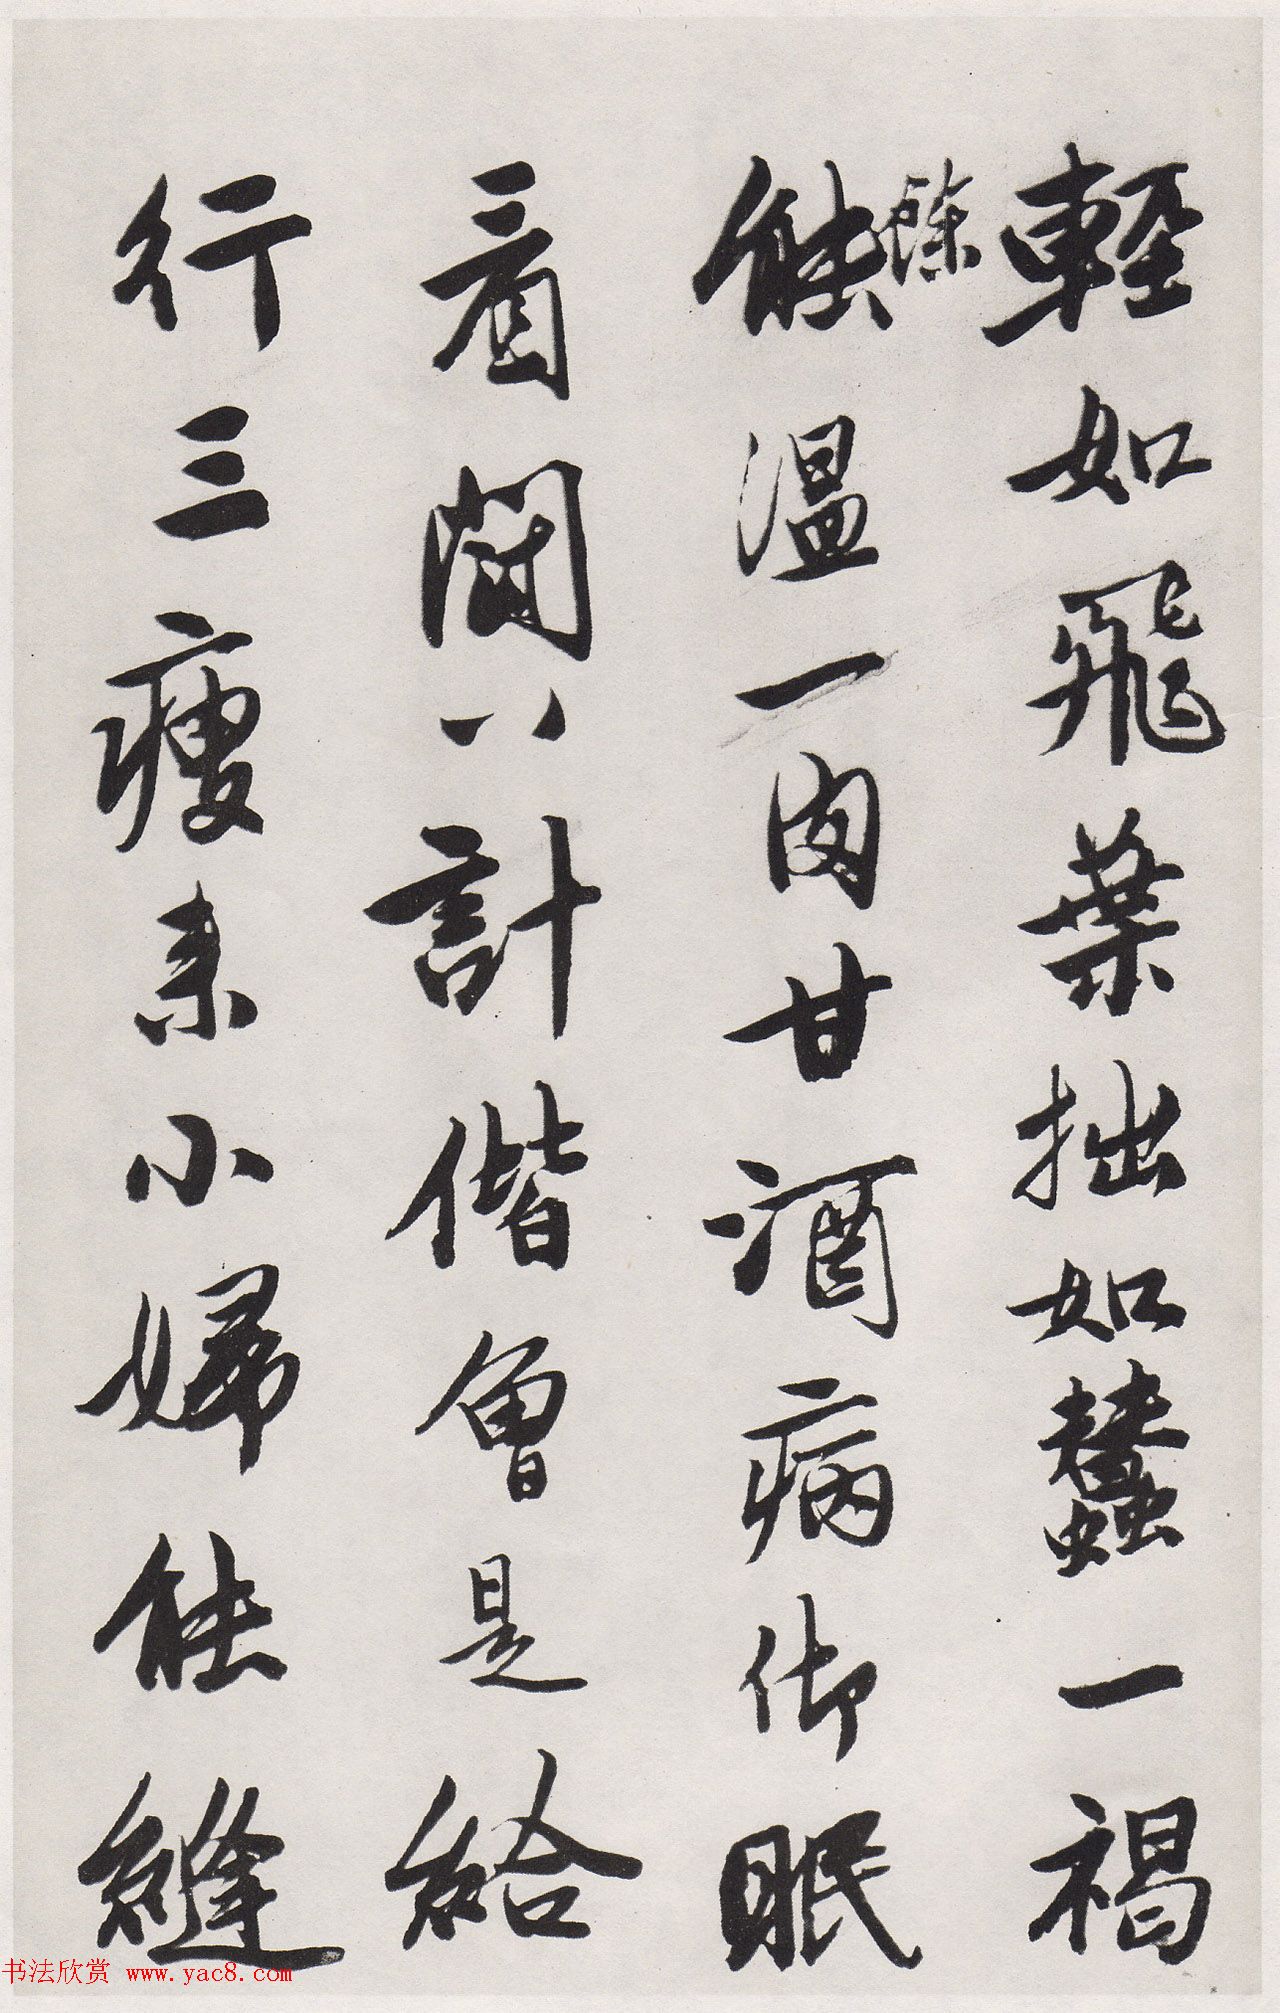 輕如飛葉拙如蠶一褐
餘
能温一肉甘酒病御眠
看閑八計偕曾是給
行三瘦來小婦能縫
书法欣赏 www.yac8.com